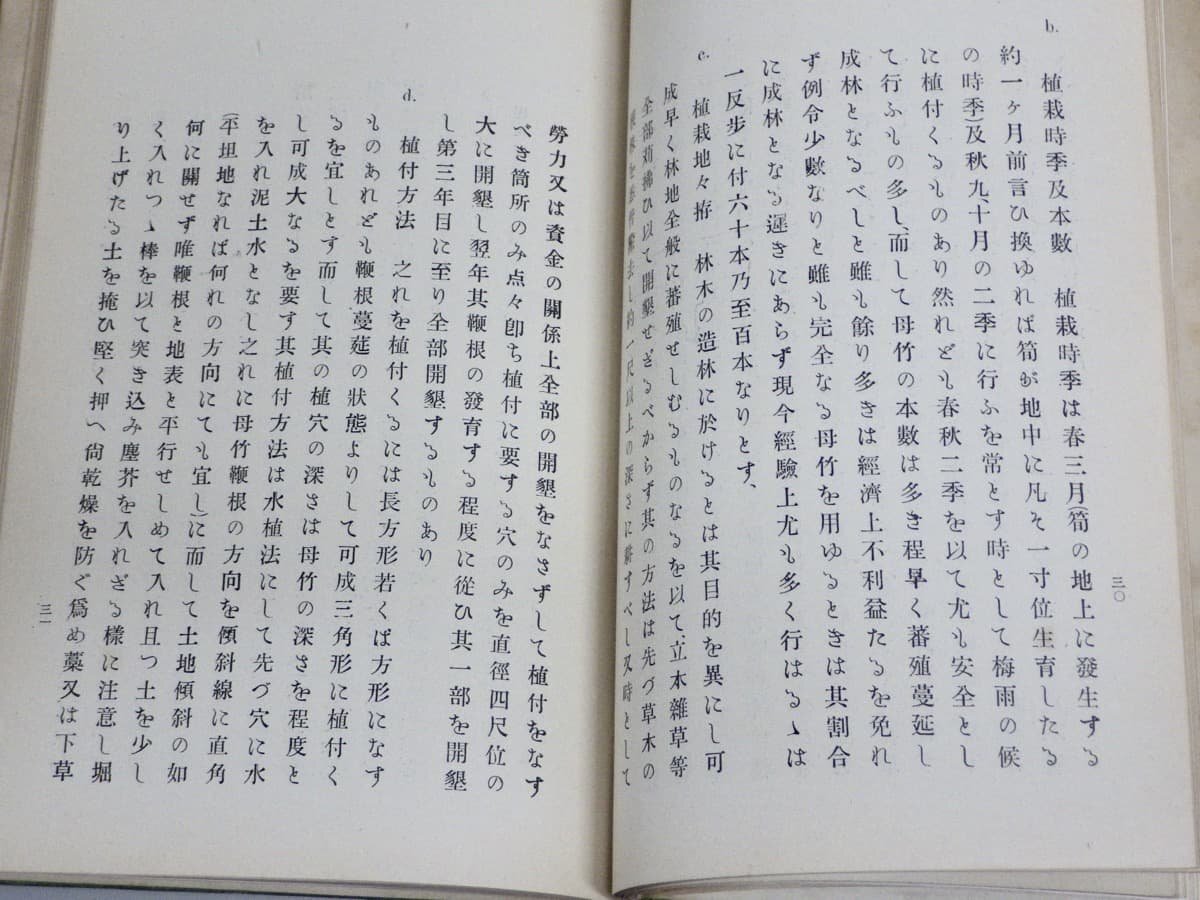 三〇
b. 植栽時季及本數 植栽時季は春三月(筍の地上に發生する
約一ヶ月前言ひ換ゆれば筍が地中に凡そ一寸位生育したる
の時季)及秋九、十月の二季に行ふを常とす時として梅雨の候
に植付くるものあり然れども春秋二季を以て尤も安全とし
て行ふもの多し、而して母竹の本數は多き程早く蕃殖蔓延し
成林となるべしと雖も餘り多きは經濟上不利益たるを免れ
ず例令少數なりと雖も完全なる母竹を用ゆるときは其割合
に成林となる遲きにあらず現今經驗上尤も多く行はるゝは
一反步に付六十本乃至百本なりとす、
c. 植栽地々拵 林木の造林に於けるとは其目的を異にし可
成早く林地全般に蕃殖せしむるものなるを以て、立木雜草等
全部苅拂ひ以て開墾せざるべからず其の方法は先づ草木の
去し約一尺以上の深さに耕すべし又時として
勞力又は資金の關係上全部の開墾をなさずして植付をなす
べき箇所のみ点々卽ち植付に要する穴のみを直徑四尺位の
大に開墾し翌年其鞭根の發育する程度に從ひ其一部を開墾
し第三年目に至り全部開墾するものあり
d. 植付方法 之れを植付くるには長方形若くば方形になす
ものあれども鞭根蔓莚の狀態よりして可成三角形に植付く
るを宜しとす而して其の植穴の深さは母竹の深さを程度と
し可成大なるを要す其植付方法は水植法にして先づ穴に水
を入れ泥土水となし之れに母竹鞭根の方向を傾斜線に直角
(平坦地なれば何れの方向にても宜し)に而して土地傾斜の如
何に關せず唯鞭根と地表と平行せしめて入れ且つ土を少し
く入れつゝ棒を以て突き込み塵芥を入れざる樣に注意し堀
り上げたる土を掩ひ堅く押へ尙乾燥を防ぐ爲め藁又は下草
三一